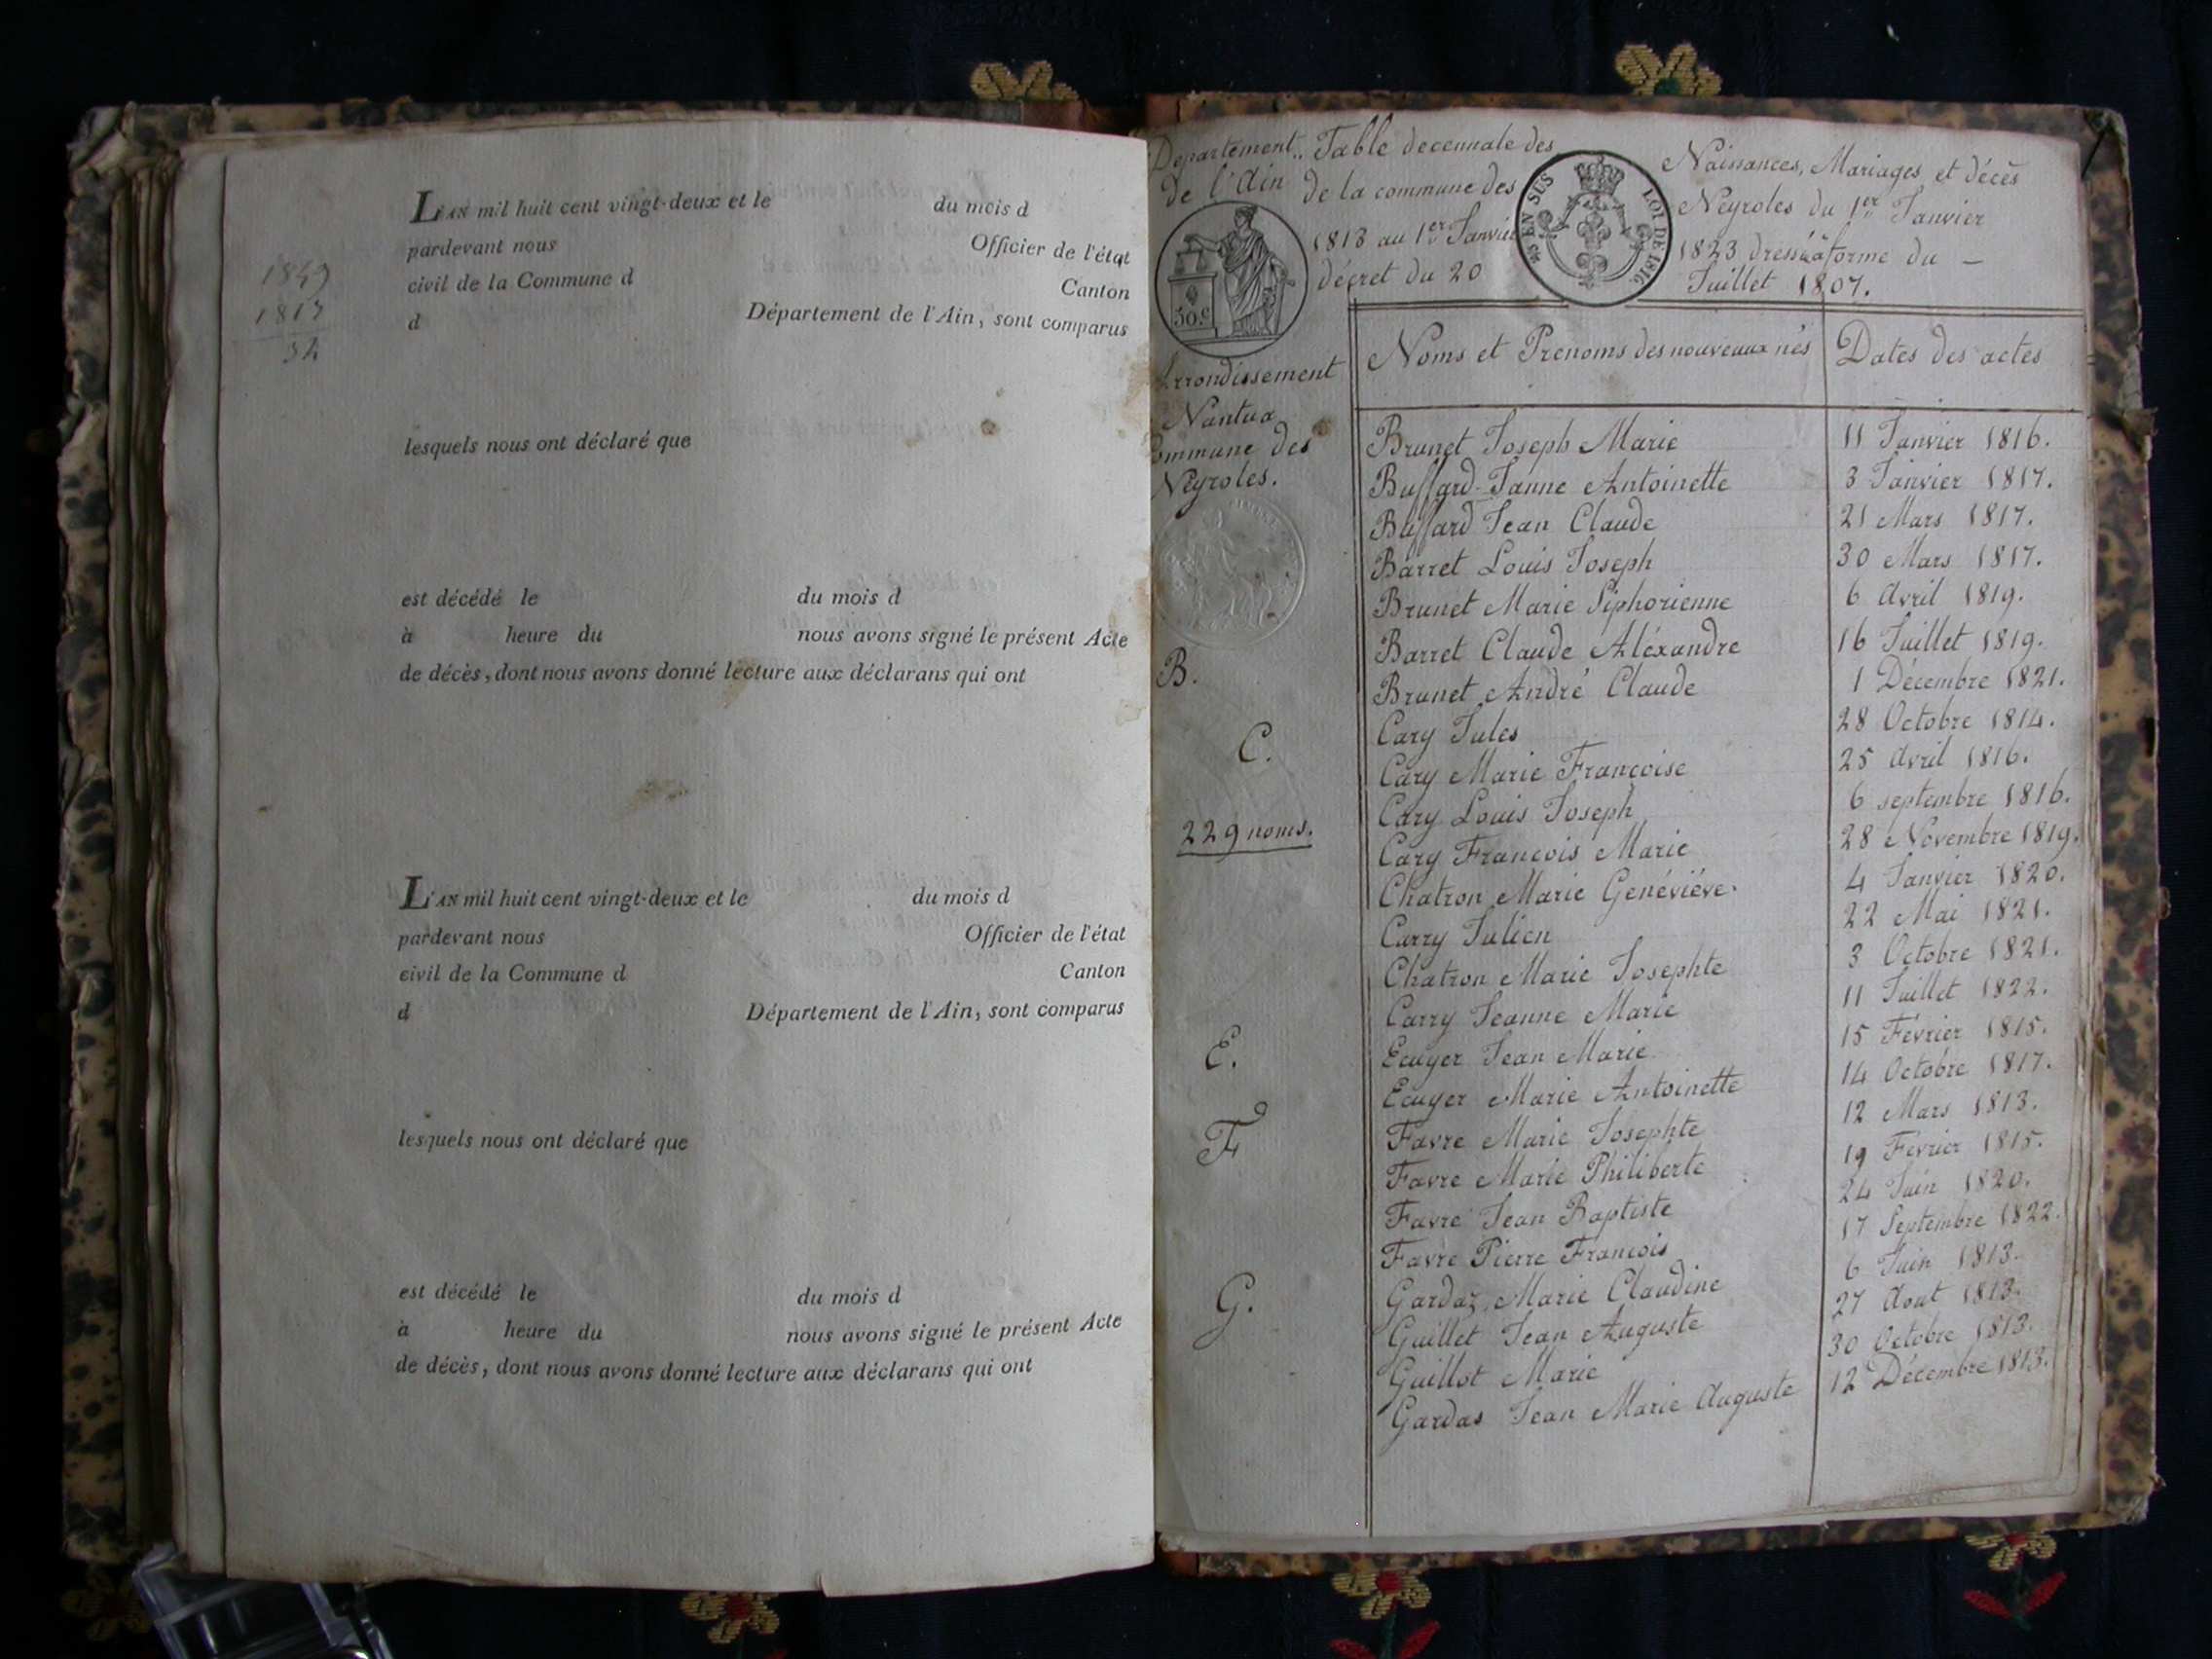 1849
1817
32
L'AN mil huit cent vingt-deux et le du mois d
pardevant nous Officier de l'état
civil de la Commune d Canton
d Département de l'Ain, sont comparus
lesquels nous ont déclaré que
est décédé le du mois d
à heure du nous avons signé le présent Acte
de décès, dont nous avons donné lecture aux déclarans qui ont
L'AN mil huit cent vingt-deux et le du mois d
pardevant nous Officier de l'état
civil de la Commune d Canton
d Département de l'Ain, sont comparus
lesquels nous ont déclaré que
est décédé le du mois d
à heure du nous avons signé le présent Acte
de décès, dont nous avons donné lecture aux déclarans qui ont
Departement
de l'Ain
30 c
Arrondissement
Nantua
Commune des
Neyroles.
Table decennale des Naissances, Mariages et décès
de la commune des Neyroles du 1er Janvier
1813 au 1er Janvier 1823 dressée à forme du
décret du 20 Juillet 1807.
EN SUS LOI DE 1816
Noms et Prenoms des nouveaux nés Dates des actes
Brunet Joseph Marie 11 Janvier 1816.
Buffard Janne Antoinette 3 Janvier 1817.
Buffard Jean Claude 21 Mars 1817.
Barret Louis Joseph 30 Mars 1817.
Brunet Marie Siphorienne 6 Avril 1819.
B. Barret Claude Aléxandre 16 Juillet 1819.
Brunet André Claude 1 Décembre 1821.
C. Cary Jules 28 Octobre 1814.
Cary Marie Françoise 25 Avril 1816.
Cary Louis Joseph 6 septembre 1816.
229 noms. Cary François Marie 28 Novembre 1819.
Chatron Marie Genéviéve 4 Janvier 1820.
Carry Julien 22 Mai 1821.
Chatron Marie Josephte 3 Octobre 1821.
Carry Jeanne Marie 11 Juillet 1822.
E. Ecuyer Jean Marie 15 Février 1815.
Ecuyer Marie Antoinette 14 Octobre 1817.
F Favre Marie Josephte 12 Mars 1813.
Favre Marie Philiberte 19 Février 1815.
Favre Jean Baptiste 24 Juin 1820.
Favre Pierre François 17 Septembre 1822.
G. Gardaz Marie Claudine 6 Juin 1813.
Guillet Jean Auguste 27 Aout 1813.
Guillot Marie 30 Octobre 1813.
Gardas Jean Marie Auguste 12 Décembre 1813.